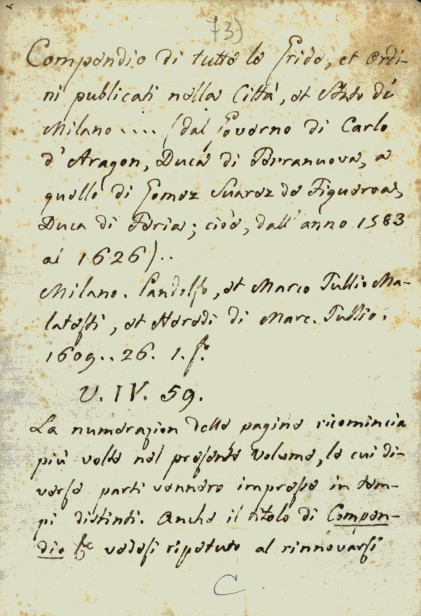 73)
Compendio di tutte le Gride, et Ordi-
ni publicati nella Città, et Stato di
Milano .... (dal Governo di Carlo
d'Aragon, Duca di Terranuova, a
quello di Gomez Suarez de Figueroa,
Duca di Feria; cioè, dall'anno 1583
al 1626)..
Milano. Pandolfo, et Marco Tullio Ma-
latesti, et Heredi di Marc. Tullio.
1609..26. 1. fo.
V. IV. 59.
La numerazion delle pagine ricomincia
più volte nel presente volume, le cui di-
verse parti vennero impresse in tem-
pi distinti. Anche il titolo di Compen-
dio &c vedesi ripetuto al rinnovarsi
C